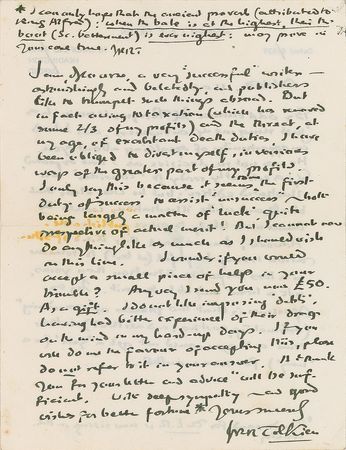 * I can only hope that the ancient proverb (attributed to
King Alfred): when the bale is at the highest, then the
boot (sc. betterment) is ever nighest: may prove in
your case true. JRRT.
I am, of course, a very 'successful' writer —
astonishingly and belatedly, and publishers
like to trumpet such things abroad. But
in fact owing to taxation (which has removed
some 2/3 of my profits) and the threat, at
my age, of exorbitant Death Duties, I have
been obliged to divest myself, in various
ways of the greater part of my profits.
I only say this because it seems to me the first
duty of 'success' to assist 'unsuccess' — both
being largely a matter of 'luck' quite
irrespective of actual merit! But I cannot now
do anything like as much as I should wish
in this line. I wonder if you would
accept a small piece of help in your
trouble? Anyway I send you now £50.
As a gift. I do not like imposing 'debts',
having had bitter experience of their drag
on the mind in my hard-up days. If you
will do me the favour of accepting this, please
do not refer to it in your answer. 'I thank
you for your letter and advice' will be suf-
ficient. With deep sympathy — and good
wishes for better fortune * Yours sincerely
JRR Tolkien